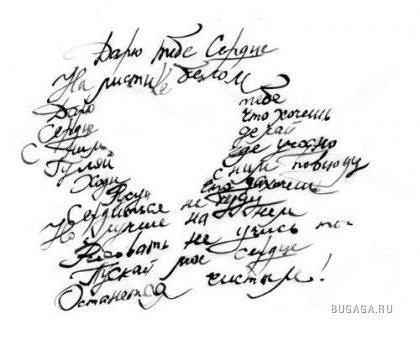 Дарю тебе Сердце
На листике белом
Дарю тебе
Сердце что хочешь
С Ним делай
Гуляй где угодно
Ходи с ним повсюду
Рисуй что захочешь
Сердиться не буду
Но лучше на Нем
Рисовать не учись ты
Пускай мое Сердце
Останется чистым!
BUGAGA.RU